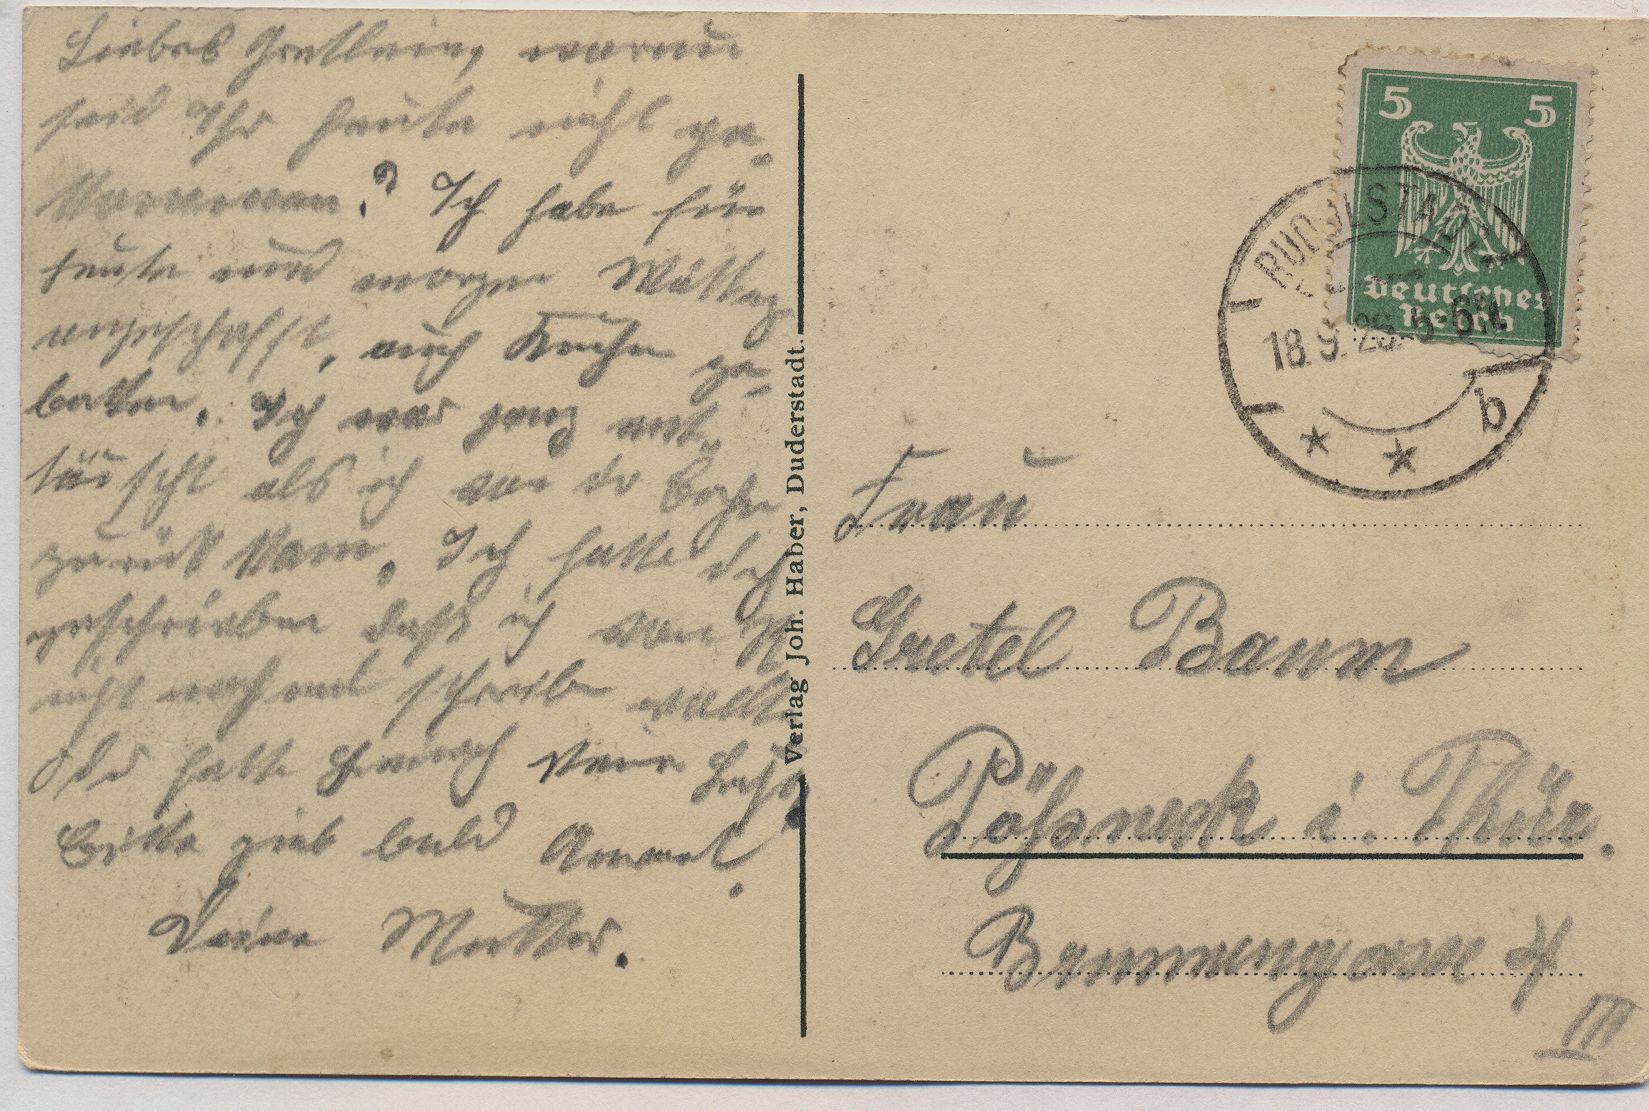 Liebes Gretlein, warum
seid Ihr heute nicht ge-
kommen? Ich habe für
heute und morgen Mittag
angeschafft, auch Kuchen ge-
backen. Ich war ganz ent-
täuscht als ich von der Bahn
zurück kam. Ich hatte doch
geschrieben daß ich
nicht noch mal schreiben wollte
hatte
Bitte gieb bald Antwort.
Deine Mutter.
Verlag Joh. Haber, Duderstadt.
5 5
Deutsches
Reich
RUDOLSTADT
18.9.26. 5-6 N.
* * b
Frau
Gretel Baum
Pößneck i. Thür.
Brunnengasse 4
III